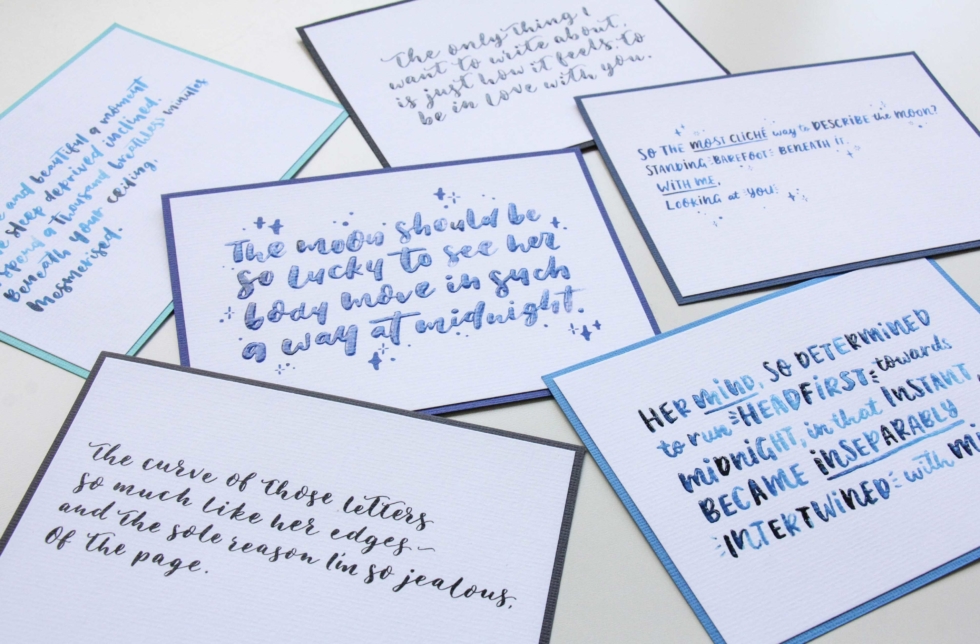 and beautiful a moment
sleep deprived inclined
spend a thousand breathless minutes
Beneath your ceiling,
Mesmerised.
The only thing I
want to write about,
is just how it feels to
be in love with you.
SO THE MOST CLICHÉ way to DESCRIBE the MOON?
STANDING BAREFOOT BENEATH IT
WITH ME.
LOOKING at YOU
The moon should be
so lucky to see her
body move in such
a way at midnight.
HER MIND, SO DETERMINED
to run HEADFIRST towards
MIDNIGHT, in that INSTANT
BECAME INSEPARABLY
INTERTWINED with
The curve of those letters
so much like her edges~
and the sole reason I'm so jealous,
Of the page.